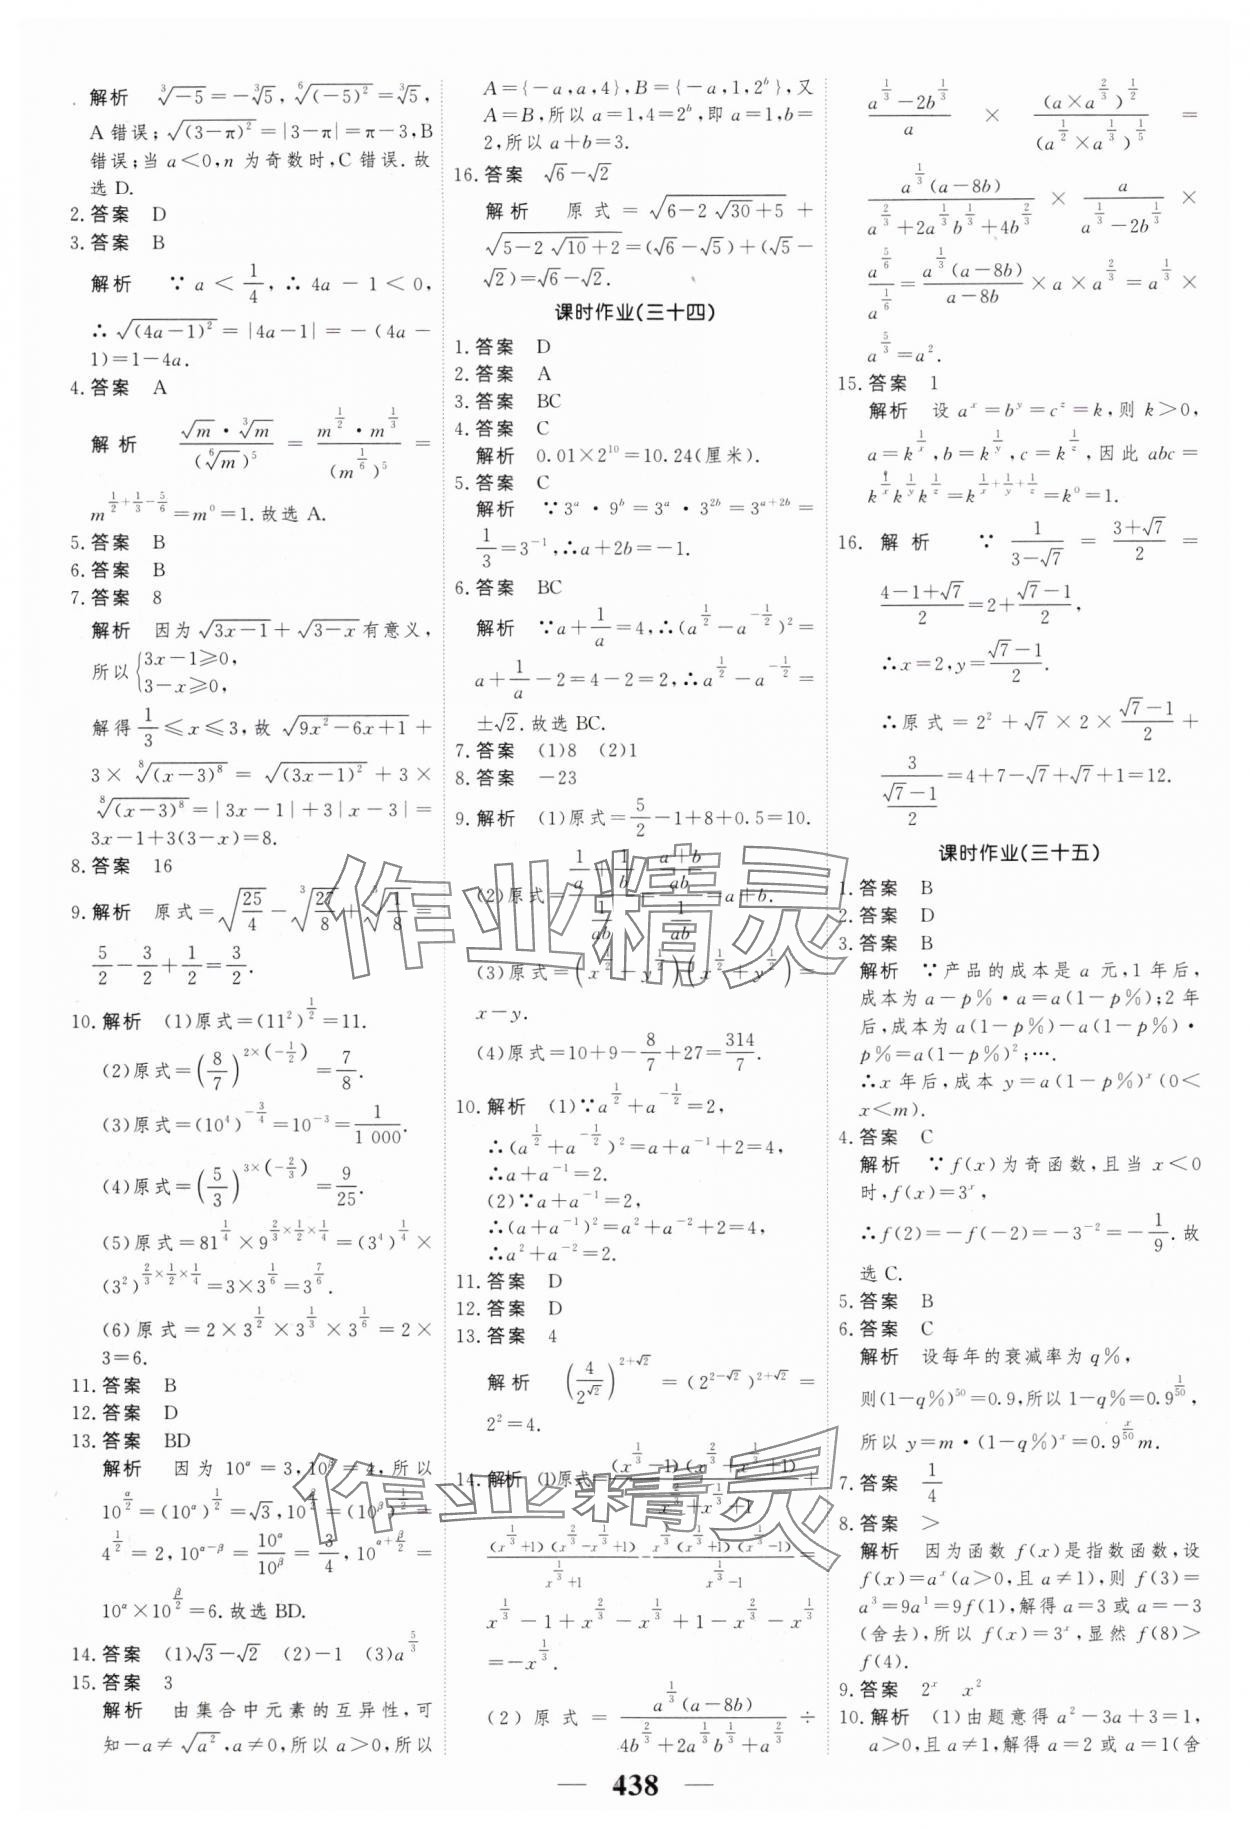 解析 ∛(-5)=-∛5, ⁶√((-5)²)=∛5,
A 错误;√((3-π)²)=|3-π|=π-3,B
错误;当 a<0,n 为奇数时,C 错误.故
选 D.
2.答案 D
3.答案 B
解析 ∵a<1/4,∴4a-1<0,
∴√((4a-1)²)=|4a-1|=-(4a-
1)=1-4a.
4.答案 A
解析 (√m·∛m)/(⁶√m)⁵=(m^(1/2)·m^(1/3))/(m^(1/6))⁵=
m^(1/2+1/3-5/6)=m⁰=1.故选 A.
5.答案 B
6.答案 B
7.答案 8
解析 因为√(3x-1)+√(3-x)有意义,
所以{3x-1≥0,
3-x≥0,
解得1/3≤x≤3,故√(9x²-6x+1)+
3×⁸√((x-3)⁸)=√((3x-1)²)+3×
⁸√((x-3)⁸)=|3x-1|+3|x-3|=
3x-1+3(3-x)=8.
8.答案 16
9.解析 原式=√(25/4)-∛(27/8)+∛(1/8)=
5/2-3/2+1/2=3/2.
10.解析 (1)原式=(11²)^(1/2)=11.
(2)原式=(8/7)^(2×(-1/2))=7/8.
(3)原式=(10⁴)^(-3/4)=10⁻³=1/1 000.
(4)原式=(5/3)^(3×(-2/3))=9/25.
(5)原式=81^(1/4)×9^(2/3×1/2×1/4)=(3⁴)^(1/4)×
(3²)^(2/3×1/2×1/4)=3×3^(1/6)=3^(7/6).
(6)原式=2×3^(1/2)×3^(1/3)×3^(1/6)=2×
3=6.
11.答案 B
12.答案 D
13.答案 BD
解析 因为 10^α=3,10^β=4,所以
10^(α/2)=(10^α)^(1/2)=√3,10^(β/2)=(10^β)^(1/2)=
4^(1/2)=2,10^(α-β)=10^α/10^β=3/4,10^(α+β/2)=
10^α×10^(β/2)=6.故选 BD.
14.答案 (1)√3-√2 (2)-1 (3)a^(5/3)
15.答案 3
解析 由集合中元素的互异性,可
知-a≠√(a²),a≠0,所以 a>0,所以
A={-a,a,4},B={-a,1,2^b},又
A=B,所以 a=1,4=2^b,即 a=1,b=
2,所以 a+b=3.
16.答案 √6-√2
解析 原式=√(6-2√30+5)+
√(5-2√10+2)=(√6-√5)+(√5-
√2)=√6-√2.
课时作业(三十四)
1.答案 D
2.答案 A
3.答案 BC
4.答案 C
解析 0.01×2¹⁰=10.24(厘米).
5.答案 C
解析 ∵3^a·9^b=3^a·3^(2b)=3^(a+2b)=
1/3=3⁻¹,∴a+2b=-1.
6.答案 BC
解析 ∵a+1/a=4,∴(a^(1/2)-a^(-1/2))²=
a+1/a-2=4-2=2,∴a^(1/2)-a^(-1/2)=
±√2.故选 BC.
7.答案 (1)8 (2)1
8.答案 -23
9.解析 (1)原式=5/2-1+8+0.5=10.
(2)原式=(1/a+1/b)/(1/ab)=((a+b)/ab)/(1/ab)=a+b.
(3)原式=(x^(1/2)-y^(1/2))(x^(1/2)+y^(1/2))=
x-y.
(4)原式=10+9-8/7+27=314/7.
10.解析 (1)∵a^(1/2)+a^(-1/2)=2,
∴(a^(1/2)+a^(-1/2))²=a+a⁻¹+2=4,
∴a+a⁻¹=2.
(2)∵a+a⁻¹=2,
∴(a+a⁻¹)²=a²+a⁻²+2=4,
∴a²+a⁻²=2.
11.答案 D
12.答案 D
13.答案 4
解析 (4/2^√2)^(2+√2)=(2^(2-√2))^(2+√2)=
2²=4.
14.解析 (1)原式=(x^(1/3)-1)(x^(2/3)+x^(1/3)+1)/(x^(2/3)+x^(1/3)+1)+
(x^(1/3)+1)(x^(2/3)-x^(1/3)+1)/(x^(1/3)+1)-(x^(1/3)(x^(1/3)+1)(x^(1/3)-1))/(x^(1/3)-1)=
x^(1/3)-1+x^(2/3)-x^(1/3)+1-x^(2/3)-x^(1/3)
=-x^(1/3).
(2)原式=a^(1/3)(a-8b)/(4b^(2/3)+2a^(1/3)b^(1/3)+a^(2/3))÷
(a^(1/3)-2b^(1/3))/a×(a×a^(2/3))^(1/2)/(a^(1/2)×a^(1/3))^(1/5)=
a^(1/3)(a-8b)/(a^(2/3)+2a^(1/3)b^(1/3)+4b^(2/3))×a/(a^(1/3)-2b^(1/3))×
a^(5/6)/a^(1/6)=a^(1/3)(a-8b)/(a-8b)×a×a^(2/3)=a^(1/3)×
a^(5/3)=a².
15.答案 1
解析 设 a^x=b^y=c^z=k,则 k>0,
a=k^(1/x),b=k^(1/y),c=k^(1/z),因此 abc=
k^(1/x)k^(1/y)k^(1/z)=k^(1/x+1/y+1/z)=k⁰=1.
16.解析 ∵1/(3-√7)=(3+√7)/2=
(4-1+√7)/2=2+(√7-1)/2,
∴x=2,y=(√7-1)/2.
∴原式=2²+√7×2×(√7-1)/2+
3/((√7-1)/2)=4+7-√7+√7+1=12.
课时作业(三十五)
1.答案 B
2.答案 D
3.答案 B
解析 ∵产品的成本是 a 元,1 年后,
成本为 a-p%·a=a(1-p%);2 年
后,成本为 a(1-p%)-a(1-p%)·
p%=a(1-p%)²;….
∴x 年后,成本 y=a(1-p%)^x(0<
x<m).
4.答案 C
解析 ∵f(x)为奇函数,且当 x<0
时,f(x)=3^x,
∴f(2)=-f(-2)=-3⁻²=-1/9.故
选 C.
5.答案 B
6.答案 C
解析 设每年的衰减率为 q%,
则(1-q%)⁵⁰=0.9,所以 1-q%=0.9^(1/50),
所以 y=m·(1-q%)^x=0.9^(x/50)m.
7.答案 1/4
8.答案 >
解析 因为函数 f(x)是指数函数,设
f(x)=a^x(a>0,且 a≠1),则 f(3)=
a³=9a¹=9f(1),解得 a=3 或 a=-3
(舍去),所以 f(x)=3^x,显然 f(8)>
f(4).
9.答案 2^x x²
10.解析 (1)由题意得 a²-3a+3=1,
a>0,且 a≠1,解得 a=2 或 a=1(舍
— 438 —
作业精灵
作业精灵